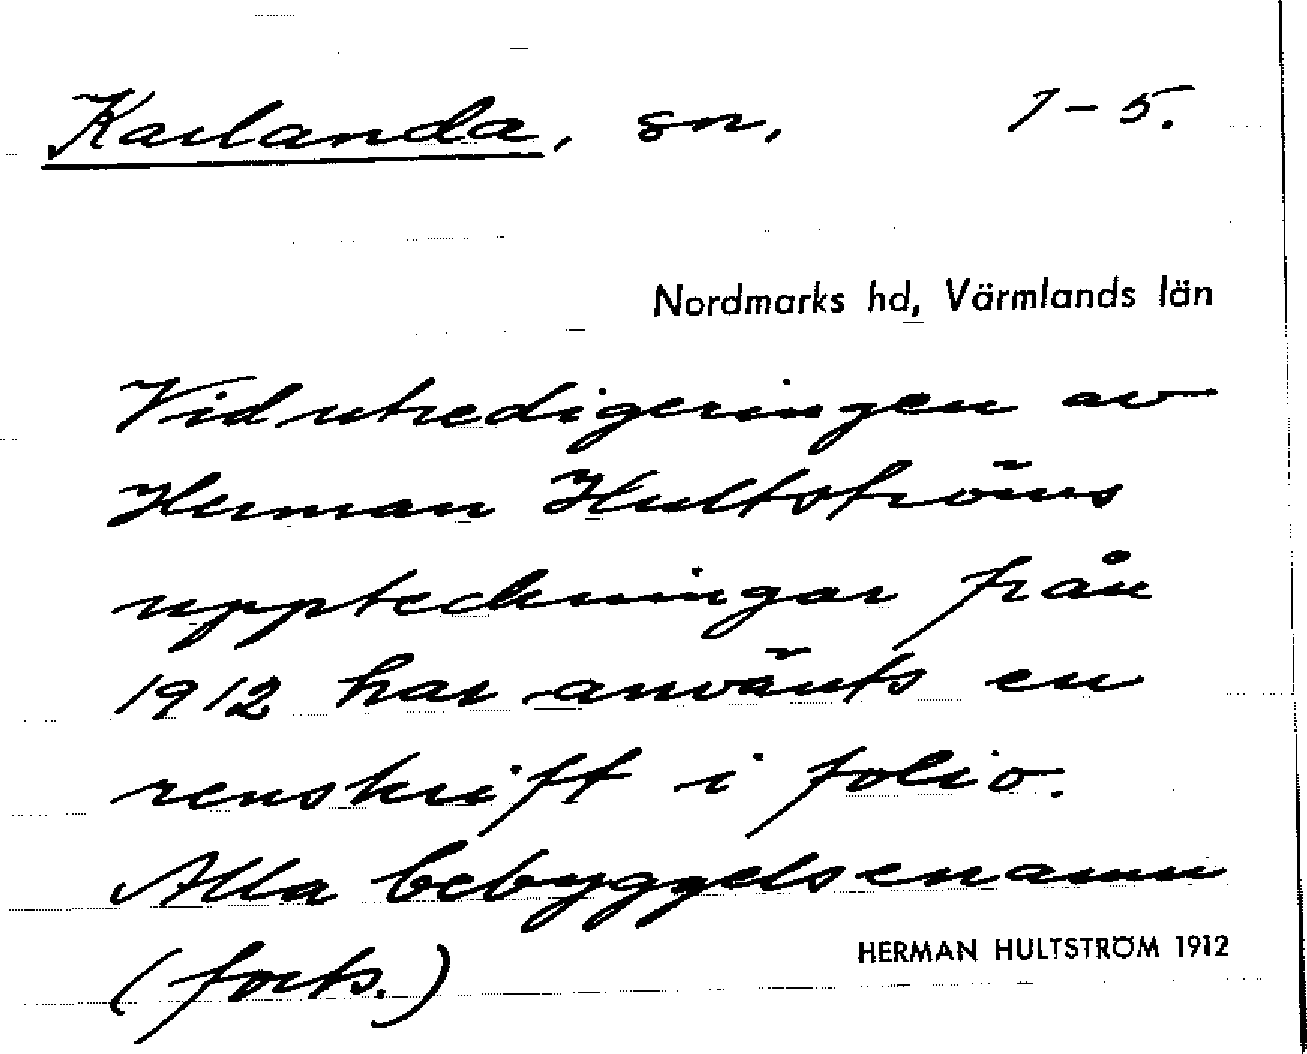 Karlanda, sn, 1-5.
Nordmarks hd, Värmlands län
Vid utredigeringen av
Herman Hultströms
uppteckningar från
1912 har använts en
renskrift i folio.
Alla bebyggelsenamn
(forts.)
HERMAN HULTSTRÖM 1912